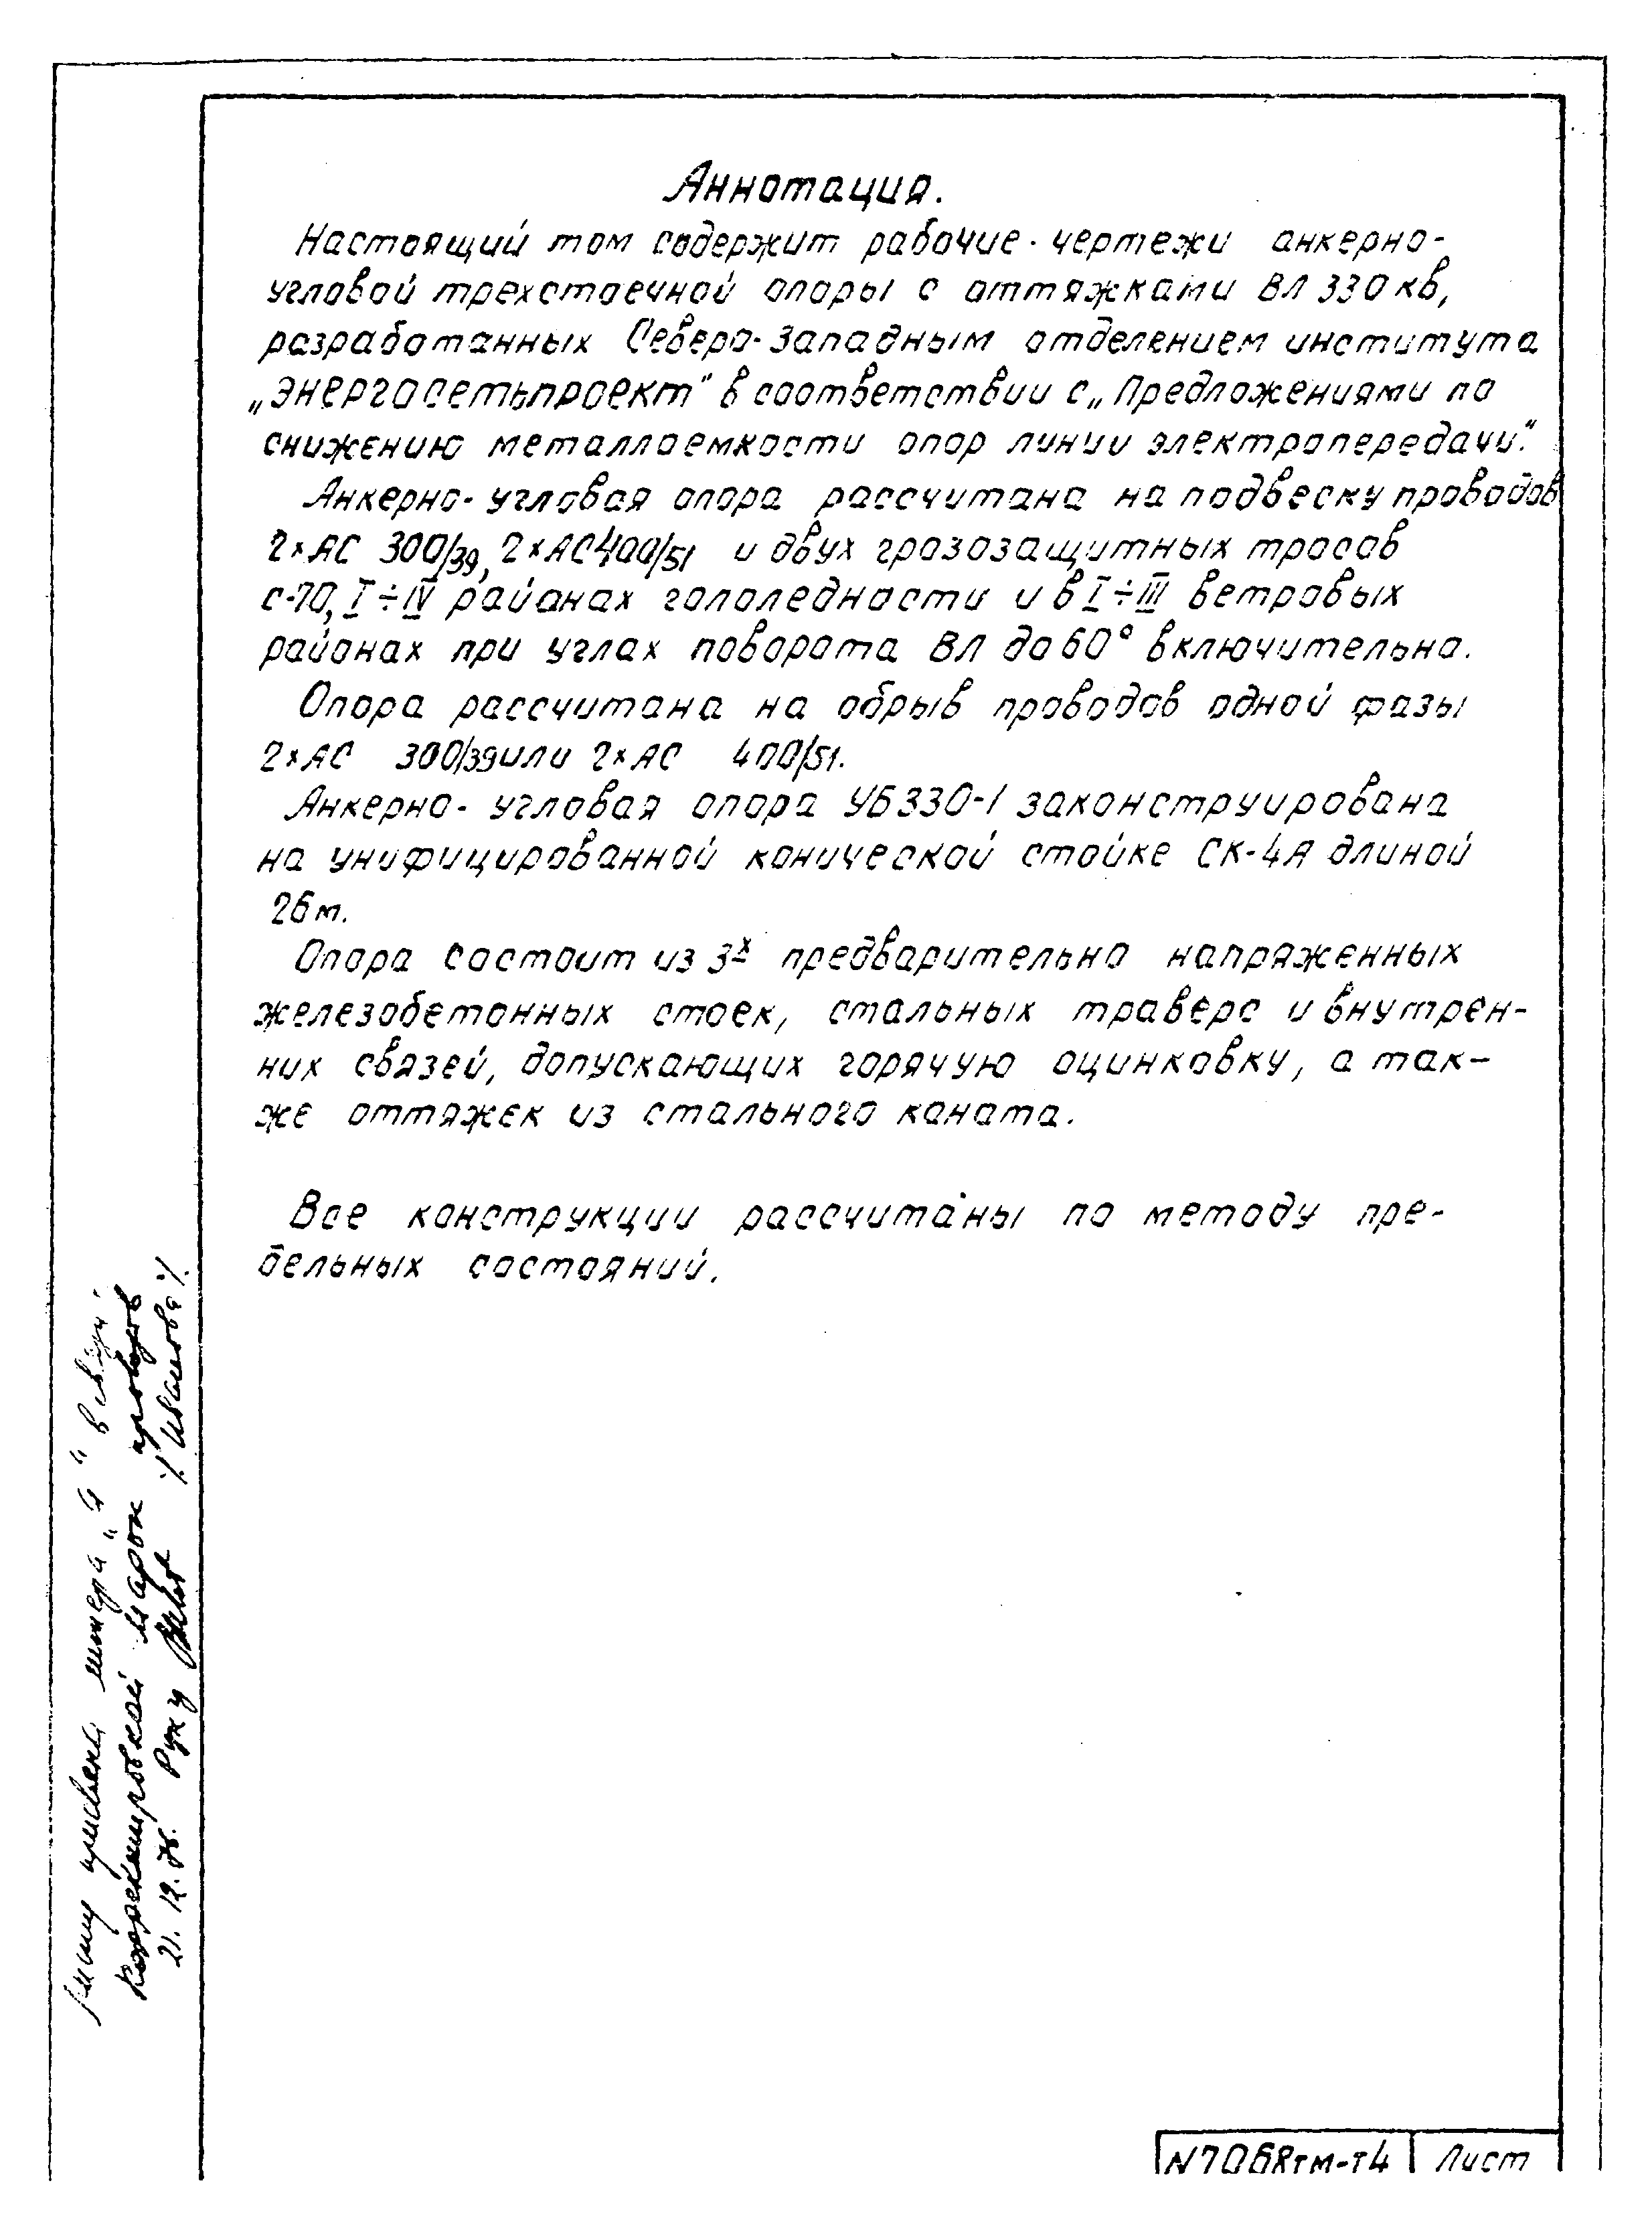 Аннотация.
Настоящий том содержит рабочие чертежи анкерно-
угловой трехстоечной опоры с оттяжками ВЛ 330 кв,
разработанных Северо-Западным отделением института
„Энергосетьпроект" в соответствии с „Предложениями по
снижению металлоемкости опор линии электропередачи".
Анкерно-угловая опора рассчитана на подвеску проводов
2×АС 300/39, 2×АС400/51 и двух грозозащитных тросов
С-70, I÷IV районах гололедности и в I÷III ветровых
районах при углах поворота ВЛ до 60° включительно.
Опора рассчитана на обрыв проводов одной фазы
2×АС 300/39 или 2×АС 400/51.
Анкерно-угловая опора УБ330-1 законструирована
на унифицированной конической стойке СК-4А длиной
26 м.
Опора состоит из 3х предварительно напряженных
железобетонных стоек, стальных траверс и внутрен-
них связей, допускающих горячую оцинковку, а так-
же оттяжек из стального каната.
Все конструкции рассчитаны по методу пре-
дельных состояний.
литера „а" в связи
корректировкой марок проводов
21. 12. Рук /Иванова/.
N7068тм-т4 Лист